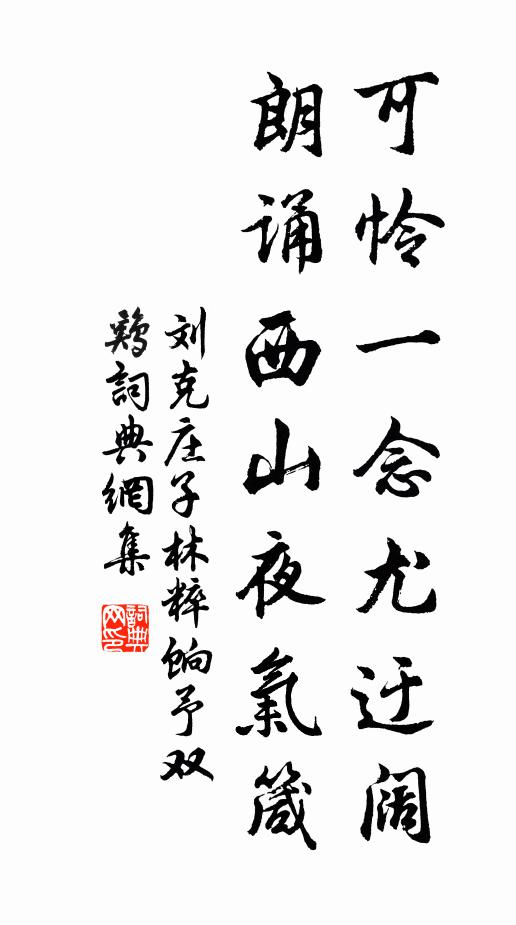 可怜一念尤迂阔
朗诵西山夜氣箴
刘克庄子林粹餉予双
鷄詞典網集
詞典網印